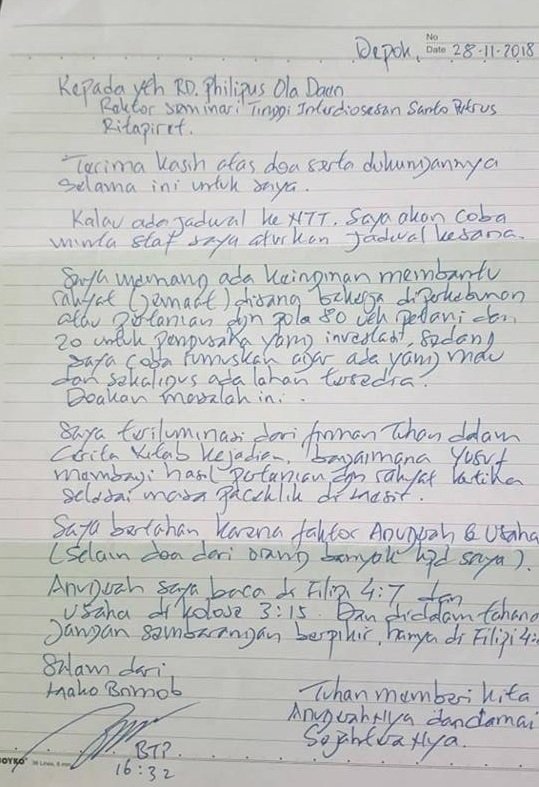 No
Depok, Date 28-11-2018
Kepada yth RD. Philipus Ola Daen
Rektor Seminari Tinggi Interdiosesan Santo Petrus
Ritapiret.
Terima kasih atas doa serta dukungannya
selama ini untuk saya.
Kalau ada jadwal ke NTT. Saya akan coba
minta staf saya aturkan jadwal kesana.
Saya memang ada keinginan membantu
rakyat (jemaat) disana bekerja diperkebunan
atau pertanian dgn pola 80 utk petani dan
20 untuk pengusaha yang investasi, sedang
saya coba rumuskan agar ada yang mau
dan sekaligus ada lahan tersedia.
Doakan masalah ini.
Saya teriluminasi dari firman Tuhan dalam
cerita Kitab Kejadian, bagaimana Yusuf
membagi hasil pertanian dgn rakyat ketika
selesai masa paceklik di Mesir.
Saya bertahan karena faktor Anugrah & Usaha
(selain doa dari orang banyak kpd saya).
Anugrah saya baca di Filipi 4:7 dan
usaha di kolose 3:15. Dan didalam tahanan
jangan sembarangan berpikir, hanya di Filipi 4:
Salam dari
Mako Brimob
Tuhan memberi kita
AnugrahNya dan damai
SejahteraNya.
BTP
16:32
36 Lines, 8 mm